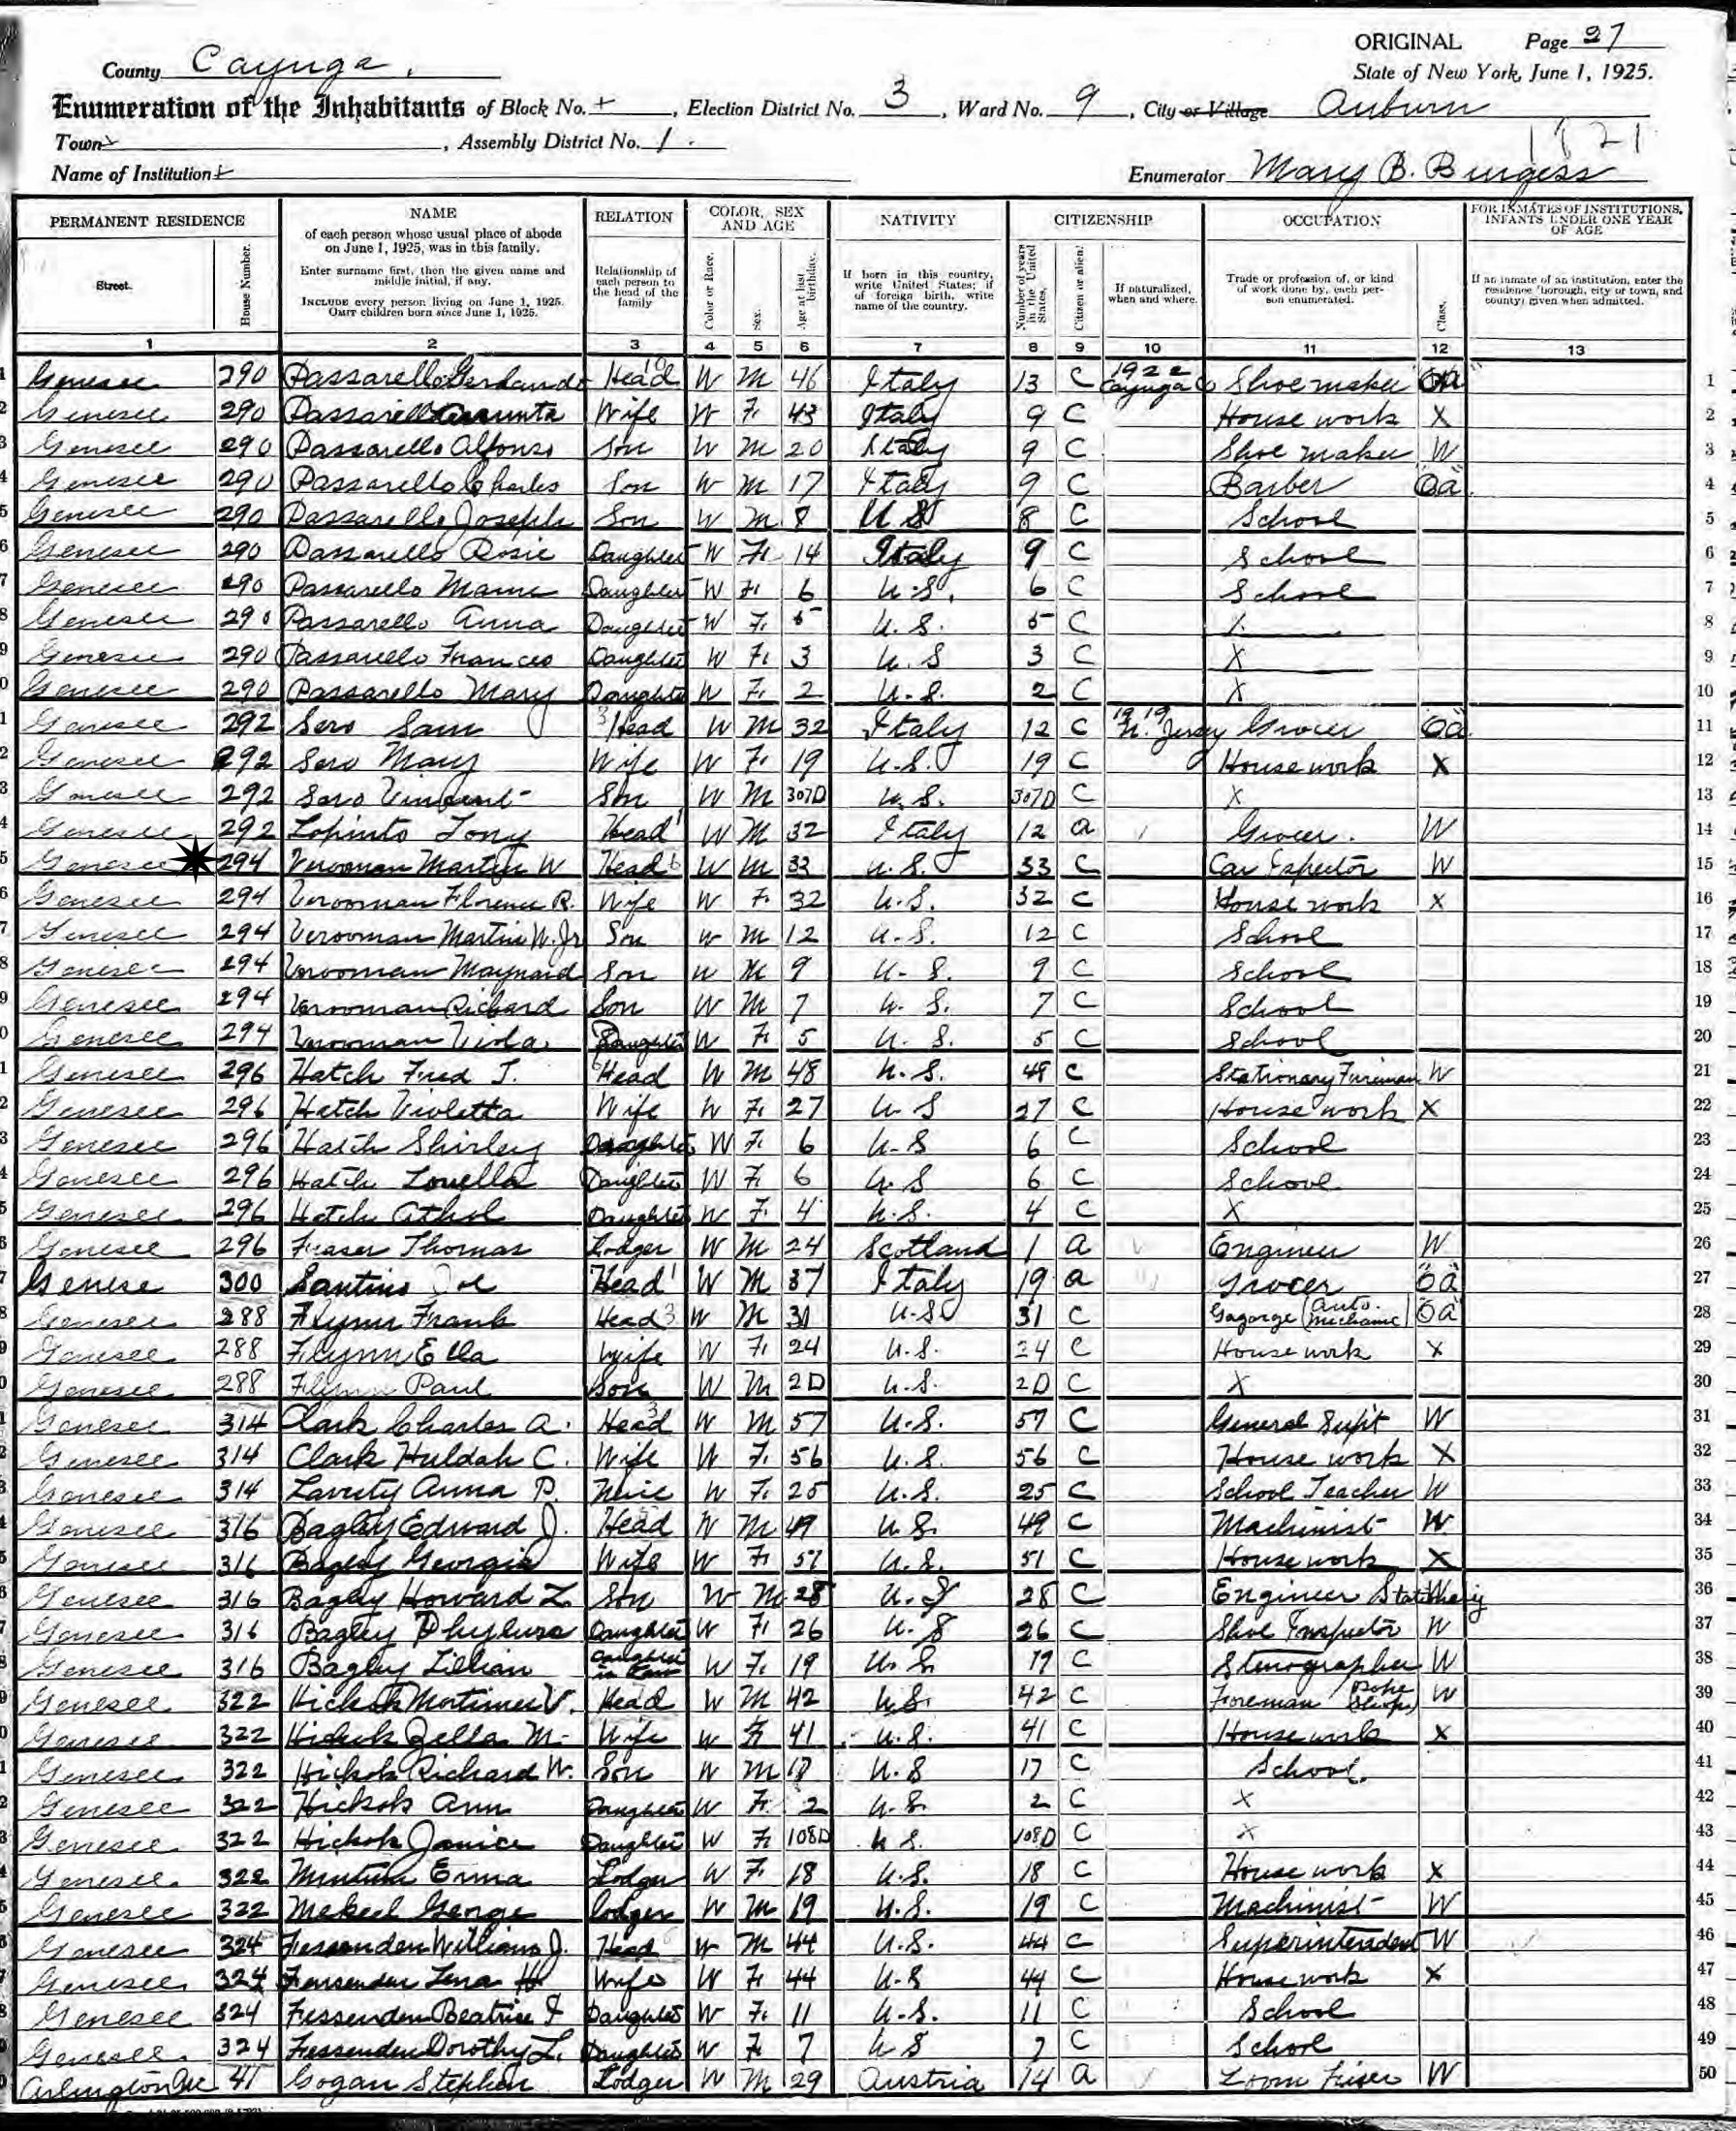 ORIGINAL Page 27
County Cayuga. State of New York, June 1, 1925.
Enumeration of the Inhabitants of Block No. + , Election District No. 3 , Ward No. 9 , City or Village Auburn
Town x , Assembly District No. 1. 1821
Name of Institution + Enumerator Mary B. Burgess
PERMANENT RESIDENCE NAME RELATION COLOR, SEX AND AGE NATIVITY CITIZENSHIP OCCUPATION FOR INMATES OF INSTITUTIONS, INFANTS UNDER ONE YEAR OF AGE
Street. House Number. of each person whose usual place of abode on June 1, 1925, was in this family. Enter surname first, then the given name and middle initial, if any. INCLUDE every person living on June 1, 1925. OMIT children born since June 1, 1925. Relationship of each person to the head of the family Color or Race. Sex. Age at last birthday. If born in this country, write United States; if of foreign birth, write name of the country. Number of years in the United States. Citizen or alien. If naturalized, when and where. Trade or profession of, or kind of work done by, each person enumerated. Class. If an inmate of an institution, enter the residence (borough, city or town, and county) given when admitted.
1 2 3 4 5 6 7 8 9 10 11 12 13
Genesee 290 Passarello Head W M 46 Italy 13 C 1922 Cayuga Co Shoe maker Oa 1
Genesee 290 Passarello Assunta Wife W F. 43 Italy 9 C House work X 2
Genesee 290 Passarello Alfonso Son W M 20 Italy 9 C Shoe maker W 3
Genesee 290 Passarello Charles Son W M 17 Italy 9 C Barber Oa 4
Genesee 290 Passarello Joseph Son W M 8 U S 8 C School 5
Genesee 290 Passarello Rosie Daughter W F. 14 Italy 9 C School 6
Genesee 290 Passarello Mame Daughter W F. 6 U.S. 6 C School 7
Genesee 290 Passarello Anna Daughter W F. 5 U.S. 5 C X 8
Genesee 290 Passarello Frances Daughter W F. 3 U.S 3 C X 9
Genesee 290 Passarello Mary Daughter W F. 2 U.S. 2 C X 10
Genesee 292 Sero Sam 3 Head W M 32 Italy 12 C 1919 N. Jersy Grocer Oa 11
Genesee 292 Sero Mary Wife W F. 19 U.S. 19 C House work X 12
Genesee 292 Sero Vincent Son W M 307D U.S. 307D C X 13
Genesee 292 Lopinto Tony Head 1 W M 32 Italy 12 a Grocer. W 14
Genesee 294 Vrooman Martin W Head 6 W M 33 U.S. 33 C Car Ispector W 15
Genesee 294 Vrooman Florence R. Wife W F. 32 U.S. 32 C House work X 16
Genesee 294 Vrooman Martin W. Jr Son W M 12 U.S. 12 C School 17
Genesee 294 Vrooman Maynard Son W M 9 U.S. 9 C School 18
Genesee 294 Vrooman Richard Son W M 7 U.S. 7 C School 19
Genesee 294 Vrooman Viola Daughter W F. 5 U.S. 5 C School 20
Genesee 296 Hatch Fred J. Head W M 48 U.S. 48 C Stationary Fireman W 21
Genesee 296 Hatch Violetta Wife W F. 27 U S 27 C House work X 22
Genesee 296 Hatch Shirley Daughter W F. 6 U.S 6 C School 23
Genesee 296 Hatch Louella Daughter W F. 6 U.S 6 C School 24
Genesee 296 Hatch Athol Daughter W F. 4 U.S. 4 C X 25
Genesee 296 Fraser Thomas Lodger W M 24 Scotland 1 a Engineer W 26
Genese 300 Santino Joe Head 1 W M 37 Italy 19 a Grocer Oa 27
Genesee 288 Flynn Frank Head 3 W M 31 U.S 31 C Gagarge (Auto. Mechanic) Oa 28
Genesee 288 Flynn Ella Wife W F. 24 U.S. 24 C House work X 29
Genesee 288 Flynn Paul Son W M 2D U.S. 2D C X 30
Genesee 314 Clark Charles A. Head 3 W M 57 U.S. 57 C General Supt W 31
Genesee 314 Clark Huldah C. Wife W F. 56 U.S. 56 C House work X 32
Genesee 314 Laverty Anna P. Niece W F. 25 U.S. 25 C School Teacher W 33
Genesee 316 Bagley Edward J. Head W M 49 U S. 49 C Machinist W 34
Genesee 316 Bagley Georgia Wife W F. 51 U.S. 51 C House work X 35
Genesee 316 Bagley Howard L Son W M 28 U.S 28 C Engineer Stationary W 36
Genesee 316 Bagley Daughter W F. 26 U.S 26 C Shoe Inspector W 37
Genesee 316 Bagley Lillian Daughter in Law W F. 19 U.S. 19 C Stenographer W 38
Genesee 322 Hickok Mortimer V. Head W M 42 U.S. 42 C Foreman (Rope Shop) W 39
Genesee 322 Hickok Zella M. Wife W F 41 U.S. 41 C House work X 40
Genesee 322 Hickok Richard W. Son W M 17 U.S 17 C School. 41
Genesee 322 Hickok Ann Daughter W F. 2 U.S. 2 C X 42
Genesee 322 Hickok Janice Daughter W F. 108D U.S. 108D C X 43
Genesee 322 Erma Lodger W F. 18 U.S. 18 C House work X 44
Genesee 322 Mekeel George Lodger W M 19 U.S. 19 C Machinist W 45
Genesee 324 Fessenden William J. Head W M 44 U.S. 44 C Superintendent W 46
Genesee 324 Fessenden Lena H Wife W F. 44 U.S 44 C House work X 47
Genesee 324 Fessenden Beatrice F Daughter W F. 11 U.S. 11 C School 48
Genesee 324 Fessenden Dorothy L. Daughter W F. 7 U S 7 C School 49
Arlington Ave 41 Cogan Stephen Lodger W M 29 Austria 14 a Loom Fixer W 50